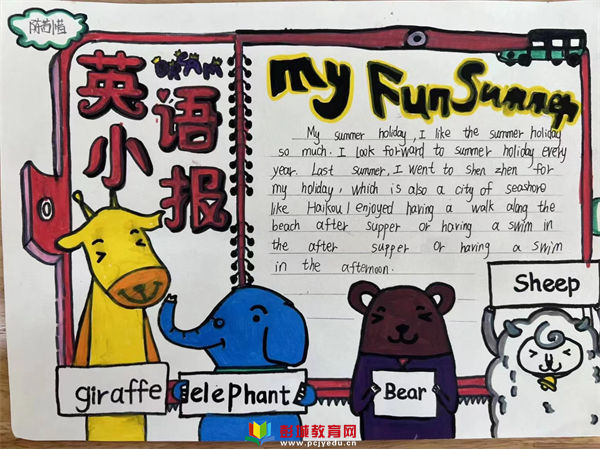 英语
小报
DREAM
My Fun Summer
My summer holiday, I like the summer holiday
so much. I look forward to summer holiday every
year. Last summer, I went to shen zhen for
my holiday, which is also a city of seashore
like Haikou I enjoyed having a walk along the
beach after supper or having a swim in
the after supper or having a swim
in the afternoon.
Sheep
giraffe
elephant
Bear
彭城教育网
www.pcjyedu.cn